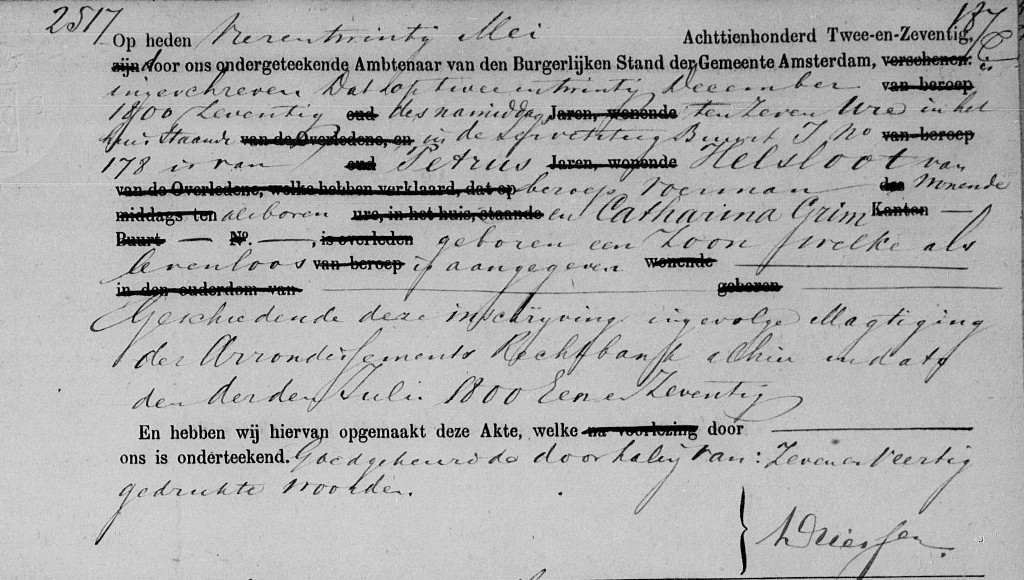 2517 187
Op heden Vierentwintig Mei Achttienhonderd Twee-en-Zeventig,
zijn voor ons ondergeteekende Ambtenaar van den Burgerlijken Stand der Gemeente Amsterdam, verschenen:
ingeschreven Dat op twee en twintig December van beroep
1800 Zeventig oud des namiddags Jaren, wonende ten Zeven Ure in het
huis staande van de Overledene, en in de Buurt J No van beroep
178 is van oud Petrus Jaren, wonende Helsloot van
van de Overledene, welke hebben verklaard, dat op beroep voerman des Wonende
middags ten alsboren ure, in het huis, staande en Catharina Grim Kanton
Buurt No. , is overleden geboren een Zoon welke als
levenloos van beroep is aangegeven wonende
in den ouderdom van geboren
Geschiedende deze inschrijving ingevolge Magtiging
der Arrondissements Rechtbank alhier in dato
den derden Juli 1800 Een en Zeventig
En hebben wij hiervan opgemaakt deze Akte, welke na voorlezing door
ons is onderteekend. Goedgekeurd de doorhaling van: Zeven en Veertig
gedrukte woorden.